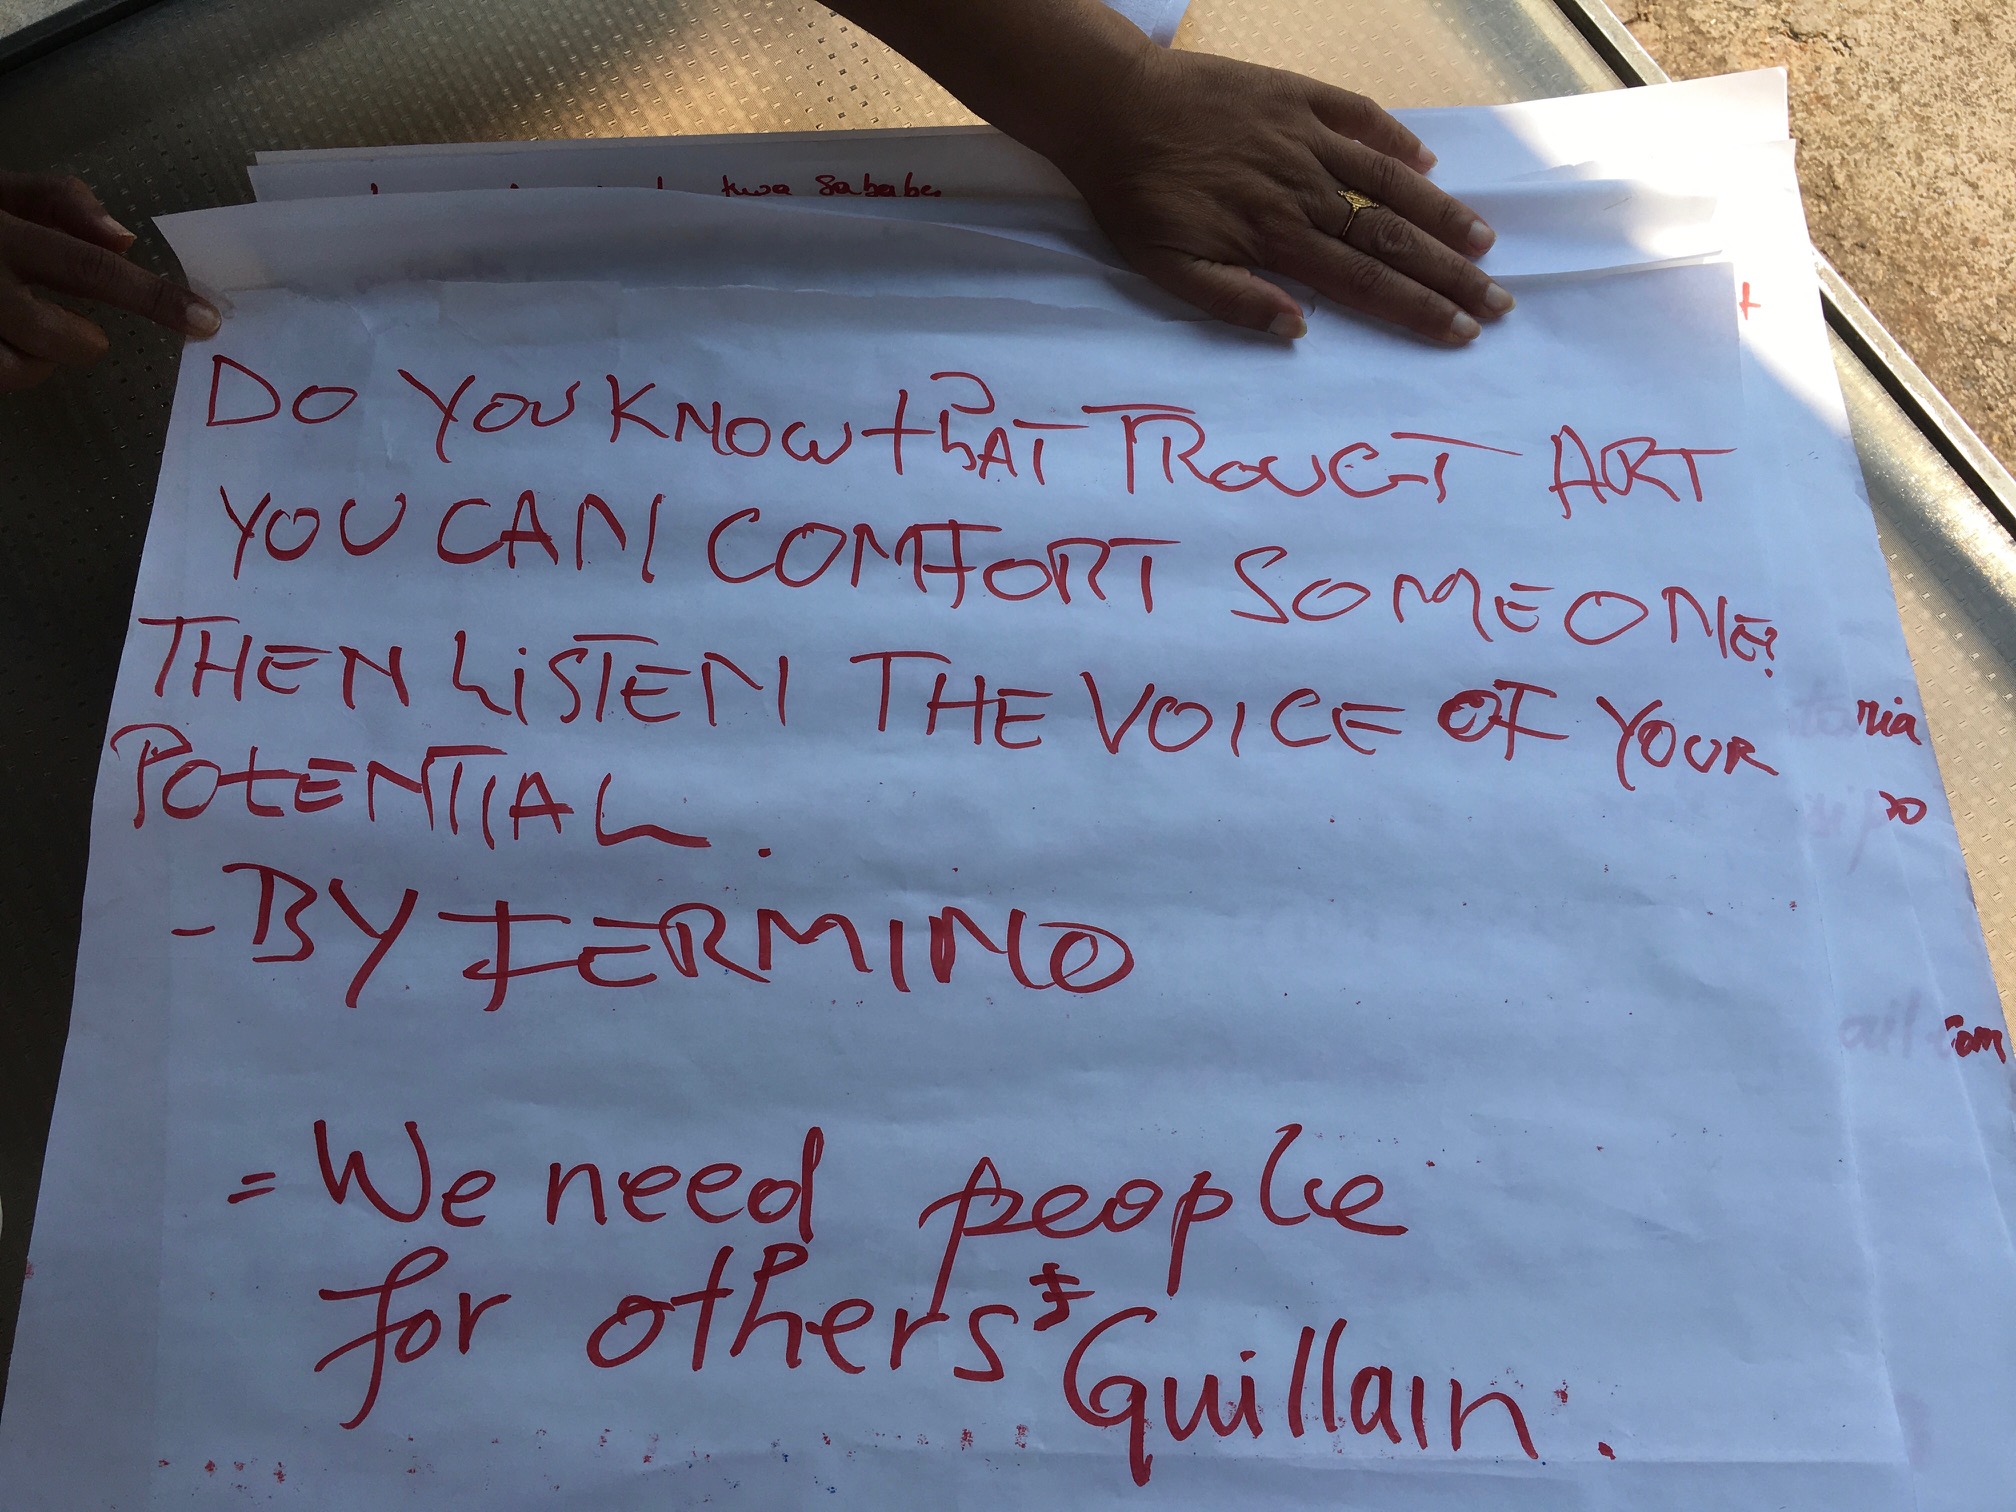 kwa sababu
+
DO YOU KNOW thAT TROUGT ART
YOU CAN COMFORT SOMEONE?
THEN LiSTEN THE VOICE OF YOUR
POtENTIAL.
- BY FERMINO
= We need people
for others = Guillain.